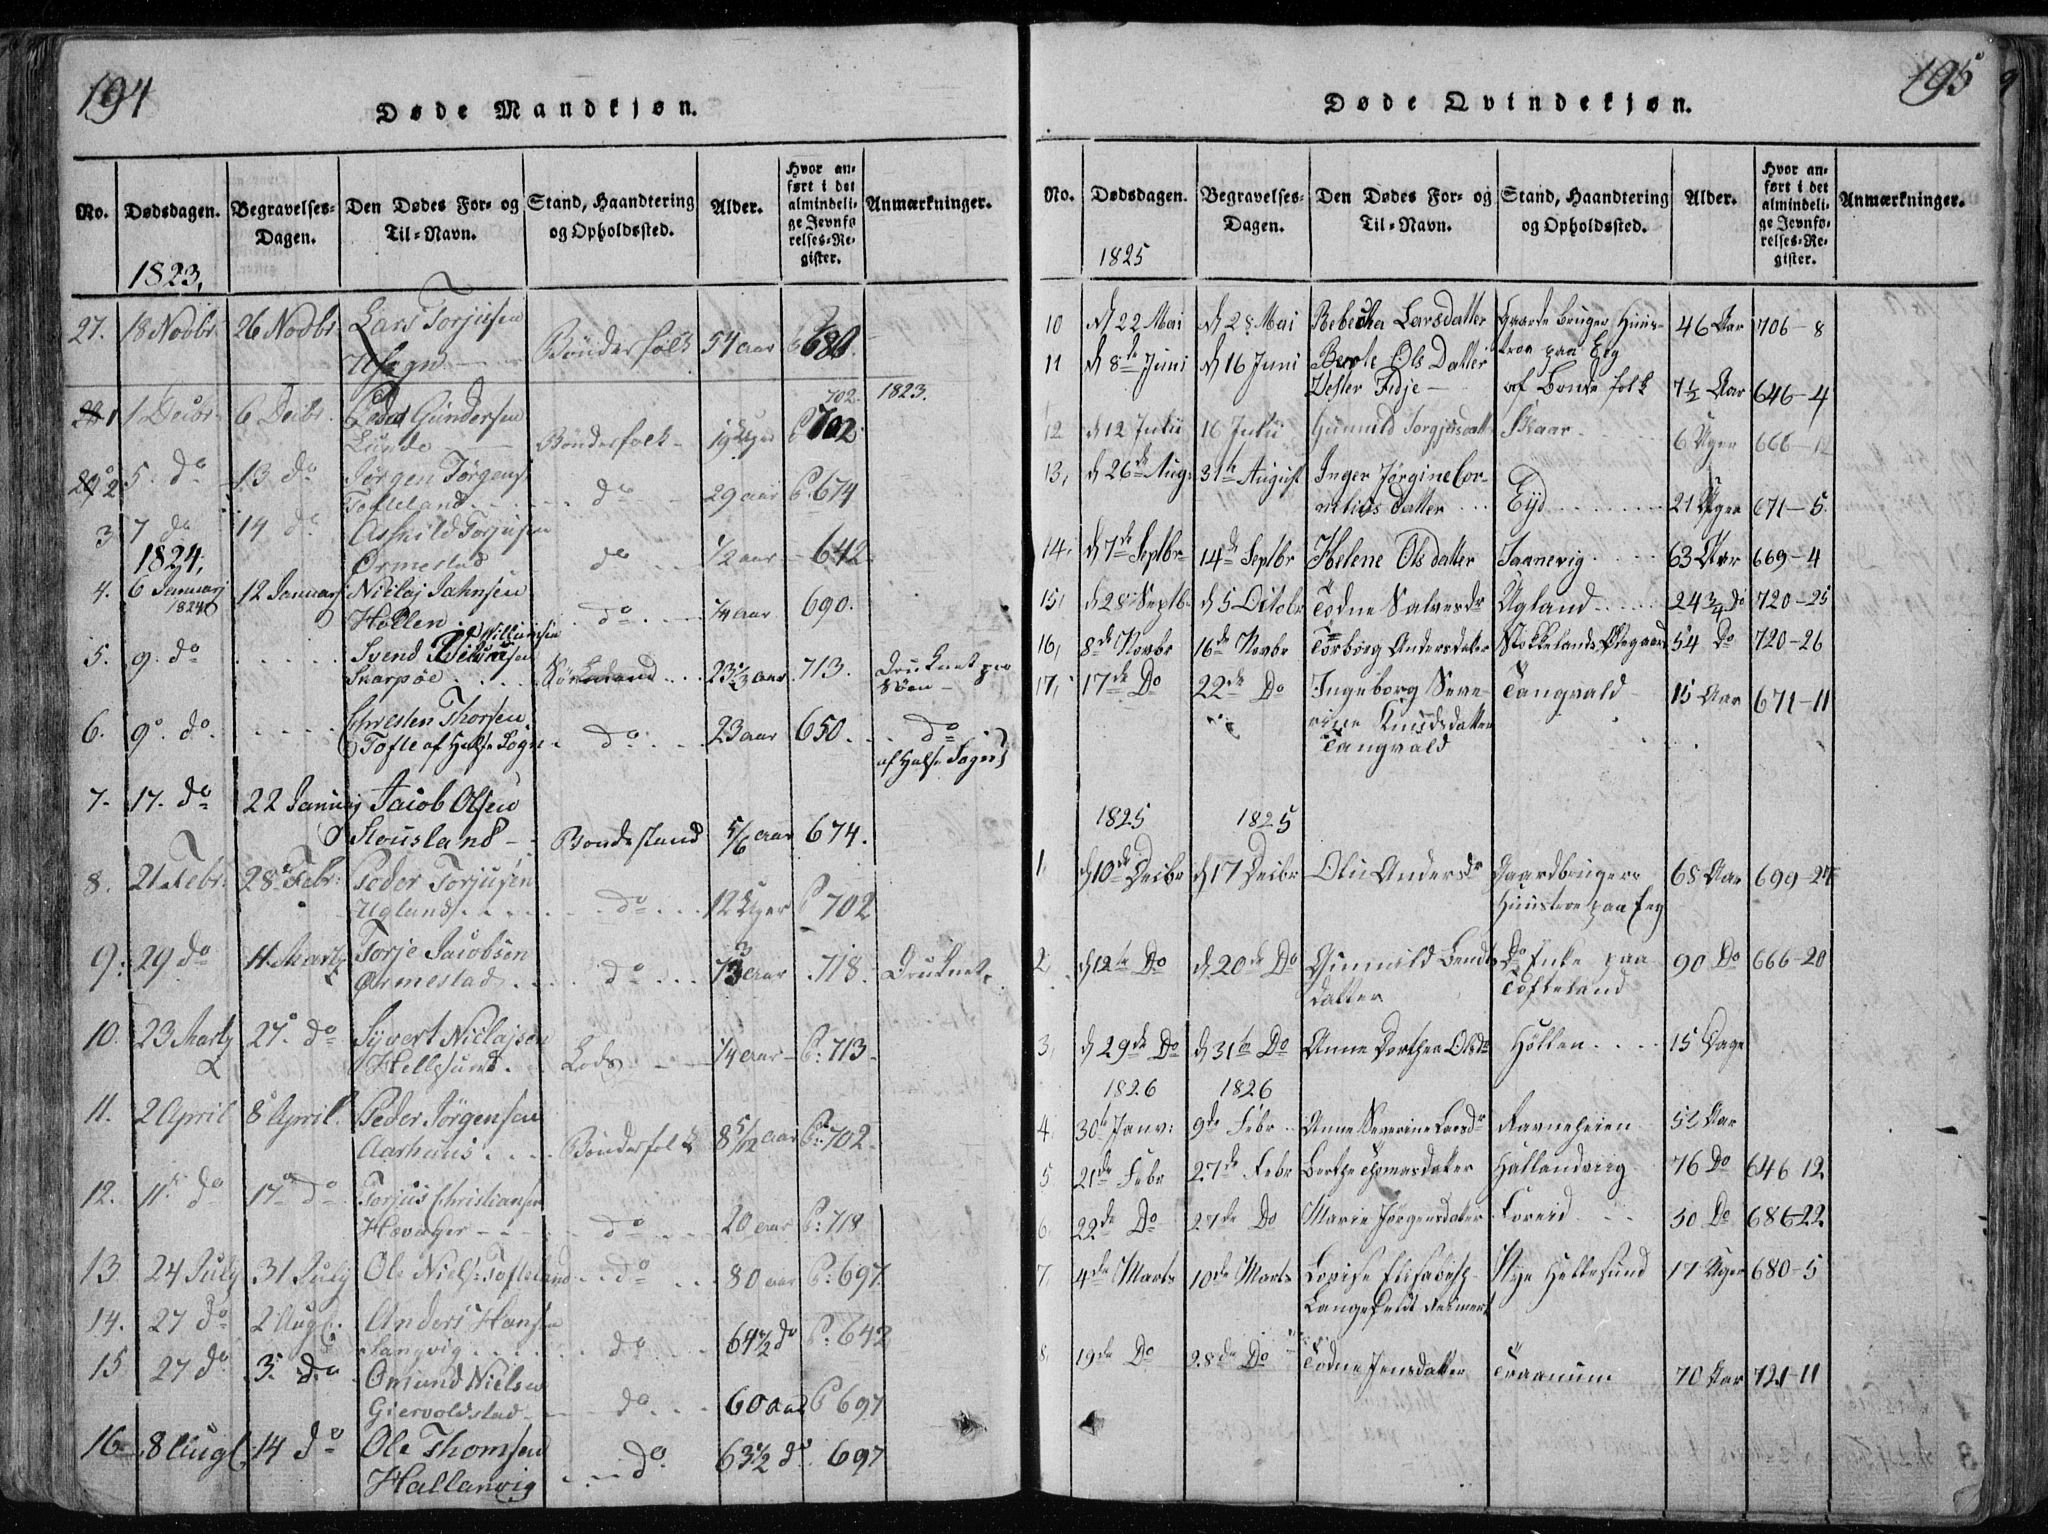 194
Døde Mandkjøn.
No. Dødsdagen. Begravelses-Dagen. Den Dødes For- og Til-Navn. Stand, Haandtering og Opholdssted. Alder. Hvor anført i det almindelige Jevnførelses-Register. Anmærkninger.
1823,
27. 18 Novbr 26 Novbr Lars Torjusen Bønderfolk 54 aar 680.
1 Decbr 6 Decbr. Peder Gundersen 702. 1823.
Lunde Bønderfolk 19 Uger 702.
2 5. do 13 do Jørgen Jørgens
Tofteland do 29 aar P. 674
3 7 do 14 do Torjusen
1824, Ormestad do 1/2 aar 642
4. 6 Januarj 1824 12 Januarj Niclaj Jahnsen
Høllen do 1/4 aar 690.
5. 9. do Svend Willumsen
Skarpøe 23 1/3 aar 713. Druknet paa Søen
6. 9. do Christen Thorsen
Tofte af Halse Sogn do 23 aar 650. do
af Halse Sogn
7. 17. do 22 Januarj Jacob Olsen
Stousland Bondestand 5/6 aar 674.
8. 21 Febr. 28 Febr. Peder Torjusen
Ugland do 12 Uger P 702
9. 29 do 11 Marty Torje Jacobsen
Ormestad do 73 aar 718. Druknet.
10. 23 Marty 27. do Syvert Niclajsen
Hellesund Lods 1/4 aar P: 713
11. 2 April 8 April Peder Jørgensen
Aarhuus Bønderfolk 8 5/12 aar P: 702
12. 11. do 17 do Torjus Christiansen
Hævager do 20 aar P: 718
13 24 July 31 July Ole Niels: Tofteland do 80 aar P: 697
14. 27 do 2 Aug. Anders Hansen
Langvig do 64 1/2 do P: 642
15 27 do 3. do Omund Nielsen
Giervoldstad do 60 aar P 697
16 8 Aug. 14 do Ole Thomsen
Hallanvig do 63 1/2 do 697
195
Døde Qvindekjøn.
No. Dødsdagen. Begravelses-Dagen. Den Dødes For- og Til-Navn. Stand, Haandtering og Opholdssted. Alder. Hvor anført i det almindelige Jevnførelses-Register. Anmærkninger.
1825
10 d 22 Mai d 28 Mai Rebecka Larsdatter Gaardbruger Huus- 46 Aar 706-8
troe paa Eeg
11 d 8de Juni d 16 Juni Berte Ols Datter
Vester Fidje af Bonde folk 7 1/2 Aar 646-4
12 d 12 Julii 16 Julii Gunnild Torgjusdatt Skaar 6 Uger 666-12
13, d 26de Aug: 31te August Inger Jørgine Cor-
nelius datter Eyd 21 Uger 671-5
14, d 7de Septbr 14de Septbr Helene Olsdatter 63 Aar 669-4
15, d 28 Septb. d 5 Octobr Todne Salvesdr Ugland 24 3/4 do 720-25
16, 8de Novbr 16de Novbr Torborg Andersdater Stokkelands Ødegaard 54 Do 720-26
17, 17de Do 22de Do Ingeborg Seve- Tangvald 15 Aar 671-11
rine Knudsdatter
Tangvald
1825 1825
1, d 10de Decbr d 17 Decbr Oliv Andersdr Gaardbrugers 68 Aar 699-27
Huustroe paa Eeg
2, d 12te Do d 20de Do Gunnild Bendts Do Enke paa 90 Do 666-20
datter Tofteland
3, d 29de Do d 31te Do Anne Dorthea Olsdr Höllen 15 Dage
1826 1826
4, 30te Janv: 9de Febr Anne Severine Larsdr Ravneheien 5 1/2 Aar
5 21de Febr 27de Febr Berthe Thomasdater Hallandvig 76 Do 646 12
6, 22de Do 27de Do Marie Jørgensdater 50 Do 686-22
7, 4de Marts 10de Marts Lovise Elisabeth Nye Hellesund 17 Uger 680-5
Langefeldt Reimert
8, 19de Do 28de Do Todne Jensdatter Traanum 70 Aar 721-11